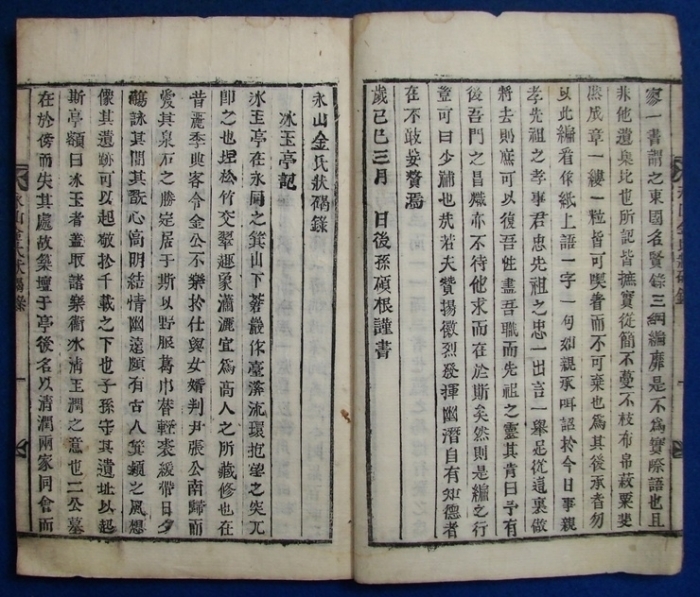 寥一書謂之東國名賢錄三綱編靡是不爲實際語也且
非他遺與比也所記皆摭實從簡不蔓不枝布帛菽粟斐
然成章一縷一粒皆可喫着而不可棄也爲其後承者勿
以此編看作紙上語一字一句如親承呌詔於今日事親
孝先祖之孝事君忠先祖之忠一出言一擧足從這裏做
將去則庶可以復吾性盡吾職而先祖之靈其肯曰予有
後吾門之昌熾亦可以不待他求而在於斯矣然則是編之行
豈可曰少補也㢤若夫贊揚徽烈發揮幽潛自有知德者
在不敢妄贅焉
歲己巳三月 日後孫碩根謹書
永山金氏狀碣錄
冰玉亭記
冰玉亭在永同之箕山下蒼巖作臺濟流環抱望之突兀
卽之也埋松竹交翠趣象瀟灑宜爲高人之所藏修也在
昔麗季典客令金公不樂於仕與女婿判尹張公南歸而
愛其泉石之勝定居于斯以野服葛巾替輕裘緩帶日夕
觴詠其間其翫心高明結情幽遠頗有古人箕潁之風想
像其遺跡可以起敬於千載之下也子孫守其遺址以起
斯亭額曰冰玉者盖取諸樂衛冰淸玉潤之意也二公墓
在於傍而失其處故築壇于亭後名以淸潤兩家同會而
永山金氏狀碣錄